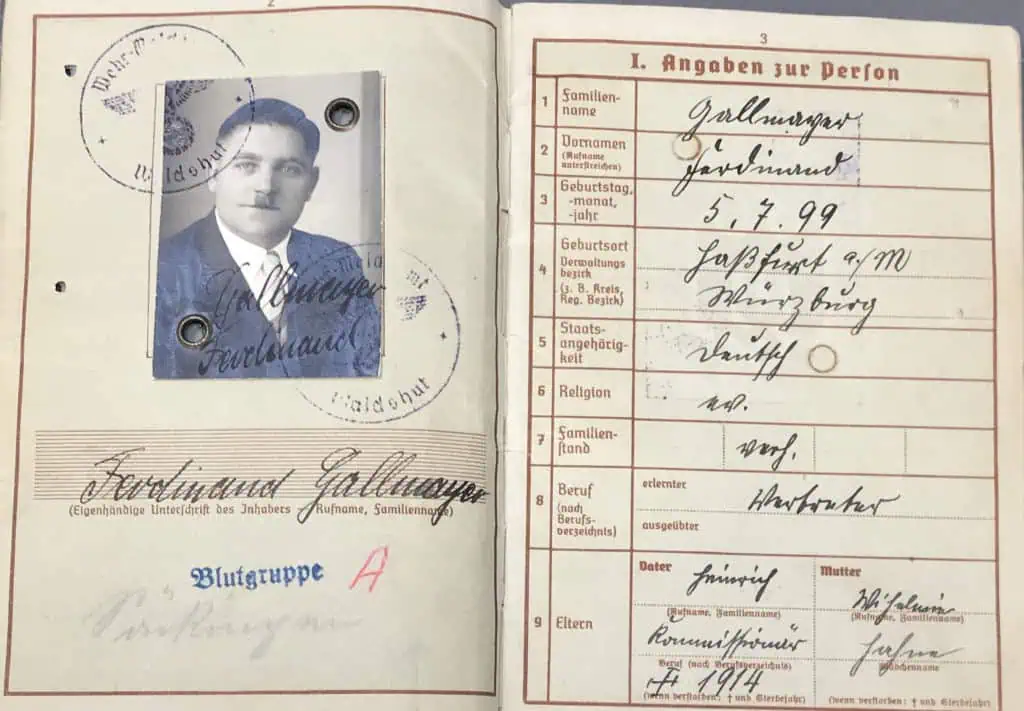 2
Wehr-Melde
Waldshut
Gallmayer
Ferdinand
Wehr-Meld
Waldshut
Ferdinand Gallmayer
(Eigenhändige Unterschrift des Inhabers Rufname, Familienname)
Blutgruppe A
Säckingen
3
I. Angaben zur Person
1 Familien-
name
Gallmayer
2 Vornamen
(Rufname
unterstreichen)
Ferdinand
3 Geburtstag,
-monat,
-jahr
5. 7. 99
4 Geburtsort
Verwaltungs
bezirk
(z. B. Kreis,
Reg. Bezirk)
Haßfurt a/M
Würzburg
5 Staats-
angehörig-
keit
Deutsch
6 Religion
ev.
7 Familien-
stand
verh.
8 Beruf
(nach
Berufs-
verzeichnis)
erlernter
Vertreter
ausgeübter
9 Eltern
Vater
Heinrich
(Rufname, Familienname)
Kommissionär
Beruf (nach Berufsverzeichnis)
† 1914
(wenn verstorben: † und Sterbejahr)
Mutter
Wilhelmine
(Rufname, Familienname)
Hahne
Mädchenname
(wenn verstorben: † und Sterbejahr)